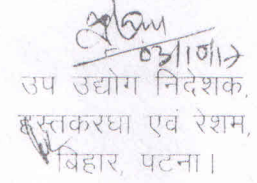 उप उद्योग निदेशक,
हस्तकरघा एवं रेशम,
बिहार, पटना।